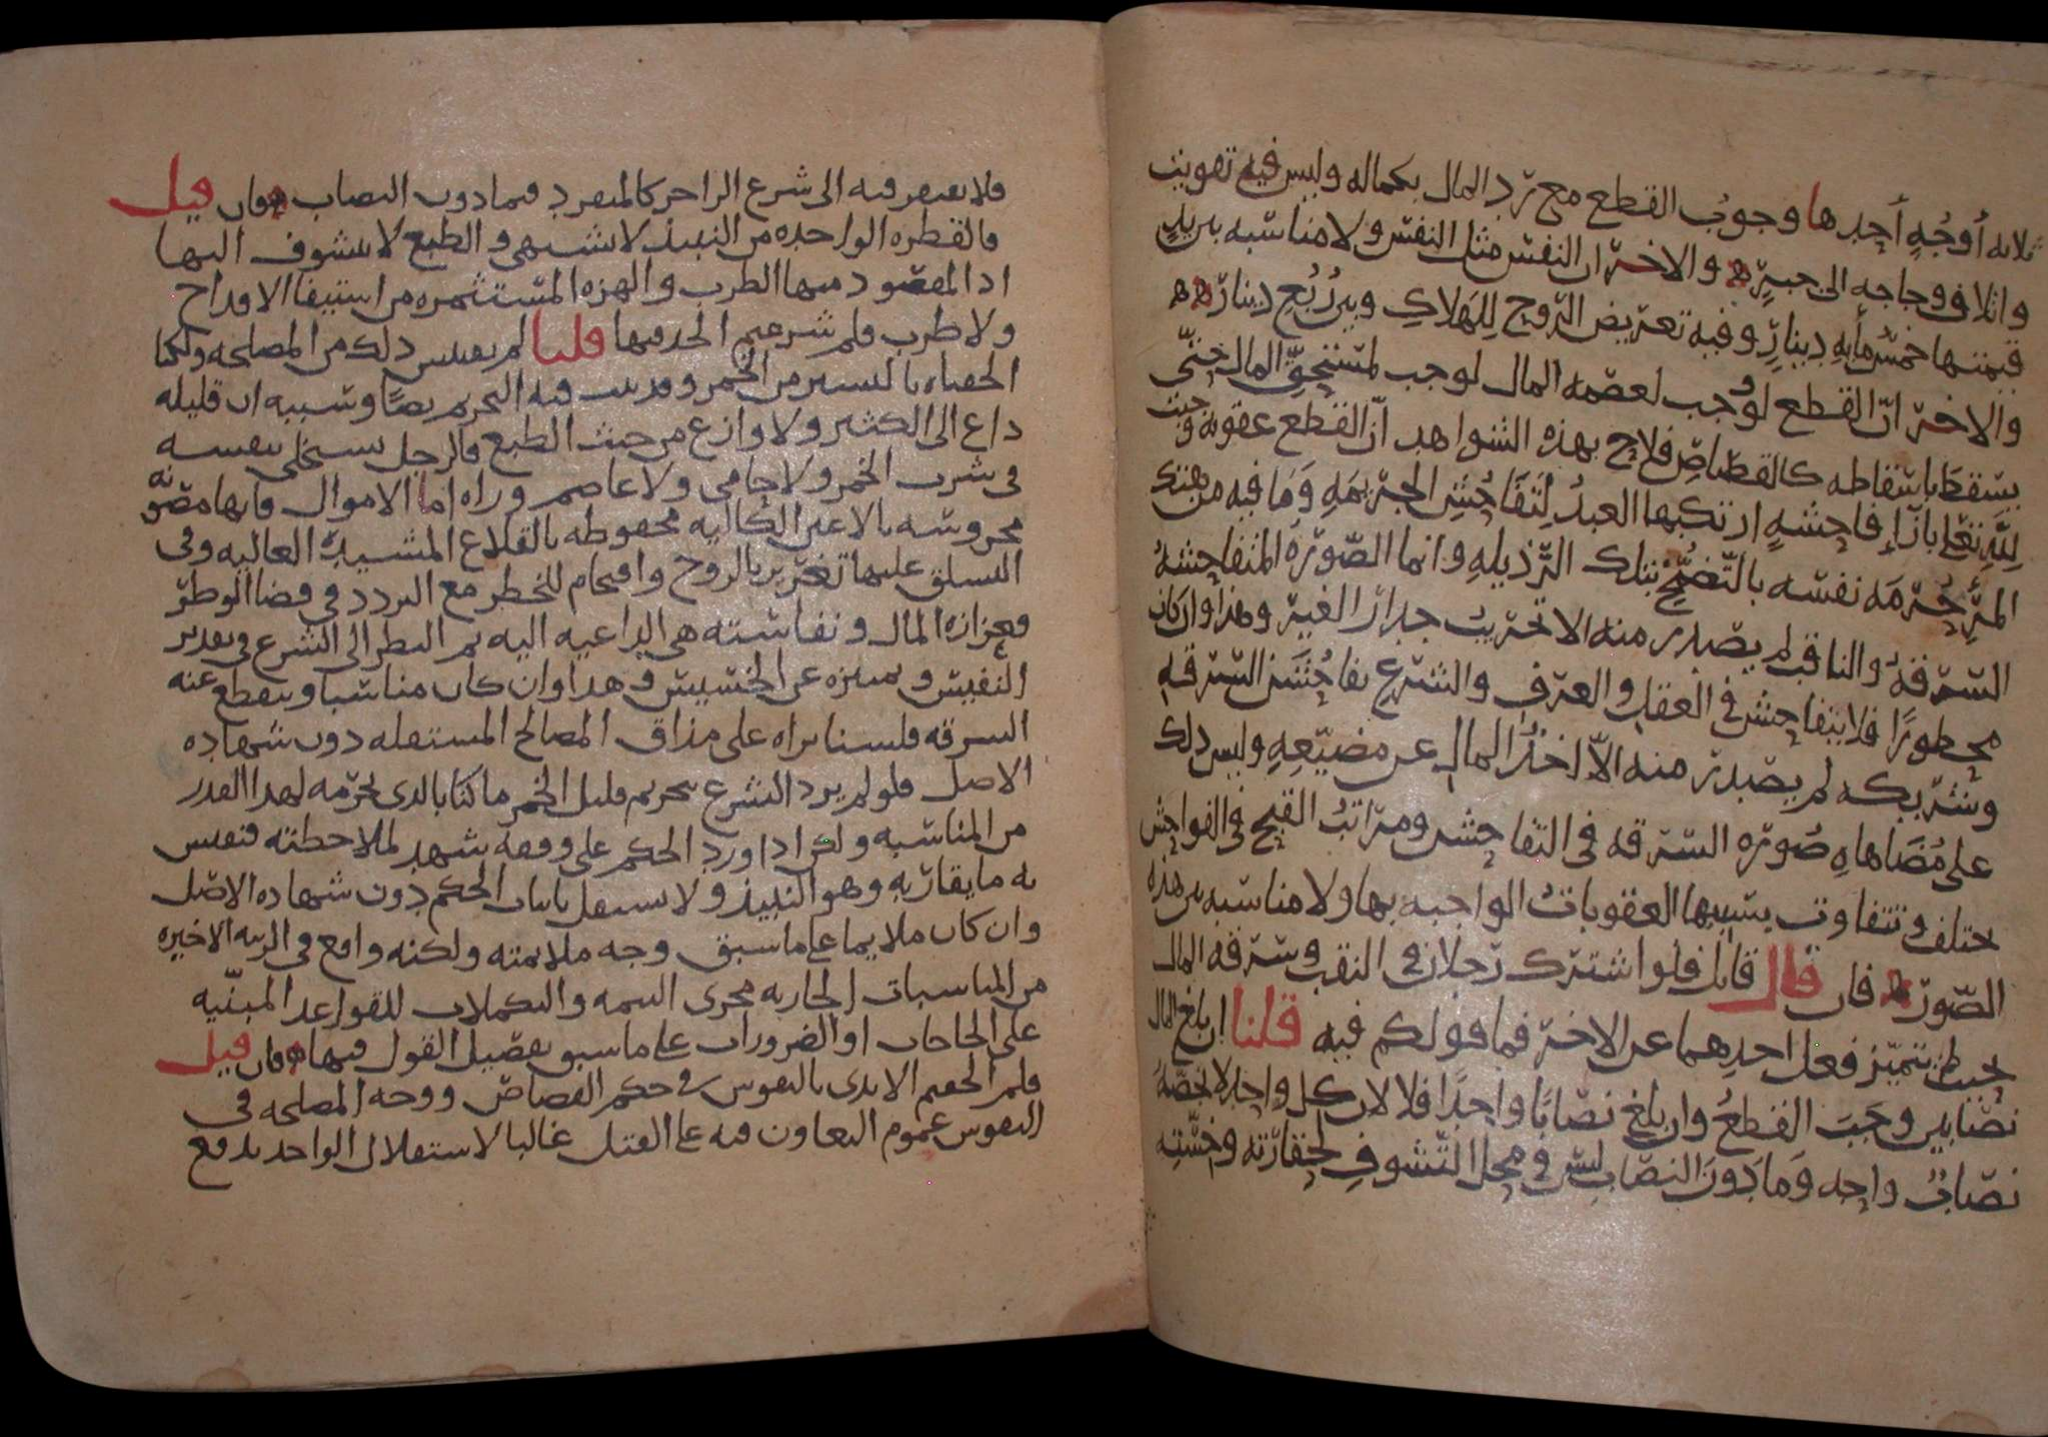 ثلاثه أوجُهٍ أحدها وجوبُ القطع مع ترّد المال بكماله وليس فيه تفويت
واتلاف وحاجه الى جبرٍ والاخر ان النفس مثل النفس ولا مناسبه بين يدٍ
قيمتها خمسُ مأيهِ دينارٍ وفيه تعريض الرّوح لِلهَلاكِ وبين رُبُع دينار
والاخر انّ القطع لو وُجب لعصمه المال لوجب لمستحقّ المال حتّى
يسقط باسقاطه كالقصاصِ فلاح بهذه الشواهد انّ القطع عقوبه وجبت
لِلّهِ تعلى بازآءِ فاحشهٍ ارتكبها العبدُ لِتَفَاحُشِ الجريمهِ وَما فيه من هتك
المرءِ حُرمَه نفسه بالتّضمُّخِ بتلك الرّذيلهِ وانما الصّورَه المتفاحشهُ
السّرقهُ والناقب لم يصدر منه الا تخريبُ جدار الغير وهذا وان كان
محظورًا فلا يتفاحش فى العقل والعرف والشرع تفاحُشَ السّرقهِ
وشريكه لم يصدر منه الاّ اخذُ المالِ عن مضيّعِهِ وليس ذلك
على مُضَاهاهِ صُوره السّرقه فى التفاحش ومراتبُ القبح فى الفواحش
تختلف وتتفاوت بسببها العقوباتُ الواجبه بها ولا مناسبه بين هذه
الصّور فان قال قائل فلو اشترك رجلان فى النقب وسرقه المال
بحيث لم يتميّز فعل احدهما عن الاخر فما قولكم فيه قلنا ان بلغ المال
نصابين وجَبَ القطعُ وان بلغ نصابًا واحدًا فلا لان كل واحد لا يخصّهُ
نصابٌ واحِد وَما دَونَ النصَاب ليس فى محل التّشوفِ لحقارته وخسّتِه
فلا يفتقر فيه الى شرع الزاجر كالمنفرد فيما دون النصاب فان قيل
فالقطره الواحده من النبيذ لا تشتهى والطبع لا يتشوف اليها
اذ المقصود منها الطرب والهزه المستثمره من استيفا الاقداح
ولا طرب فلم شرعتم الحد فيها قلنا لم نقتبس ذلك من المصلحه ولكنا
الحقناه باليسير من الخمر وقد ثبت فيه التحريم نصًا وسببه ان قليله
داع الى الكثير ولا وازع من حيث الطبع فالرجل يستخلى بنفسه
فى شرب الخمر ولا حامى ولا عاصم وراه اما الاموال فانها مصونه
محروسه بالاعين الكاليه محفوظه بالقلاع المشيده العاليه وفى
التسلق عليها تغرير بالروح واقتحام للخطر مع التردد فى قضا الوطر
فعزازه المال ونفاسته هى الداعيه اليه ثم النظر الى الشرع فى تقدير
النفيس وتميزه عن الخسيس وهذا وان كان مناسبا وينقطع عنه
السرقه فلسنا نراه على مذاق المصالح المستقله دون شهاده
الاصل فلو لم يرد الشرع بتحريم قليل الخمر ما كنا بالذى نحرّمه لهذا القدر
من المناسبه ولكن اذا ورد الحكم على وفقه شهد لملاحظته فنقيس
به ما يقاربه وهو النبيذ ولا يستقل باثبات الحكم دون شهاده الاصل
وان كان ملايما على ما سبق وجه ملائمته ولكنه واقع فى الرتبه الاخيره
من المناسبات الجاريه مجرى التتمه والتكملات للقواعد المبنيّه
على الحاجات او الضرورات على ما سبق تفصيل القول فيها فان قيل
فلم الحقتم الايدى بالنفوس فى حكم القصاص ووجه المصلحه فى
النفوس عموم التعاون فيه على القتل غالبا لاستقلال الواحد بدفع